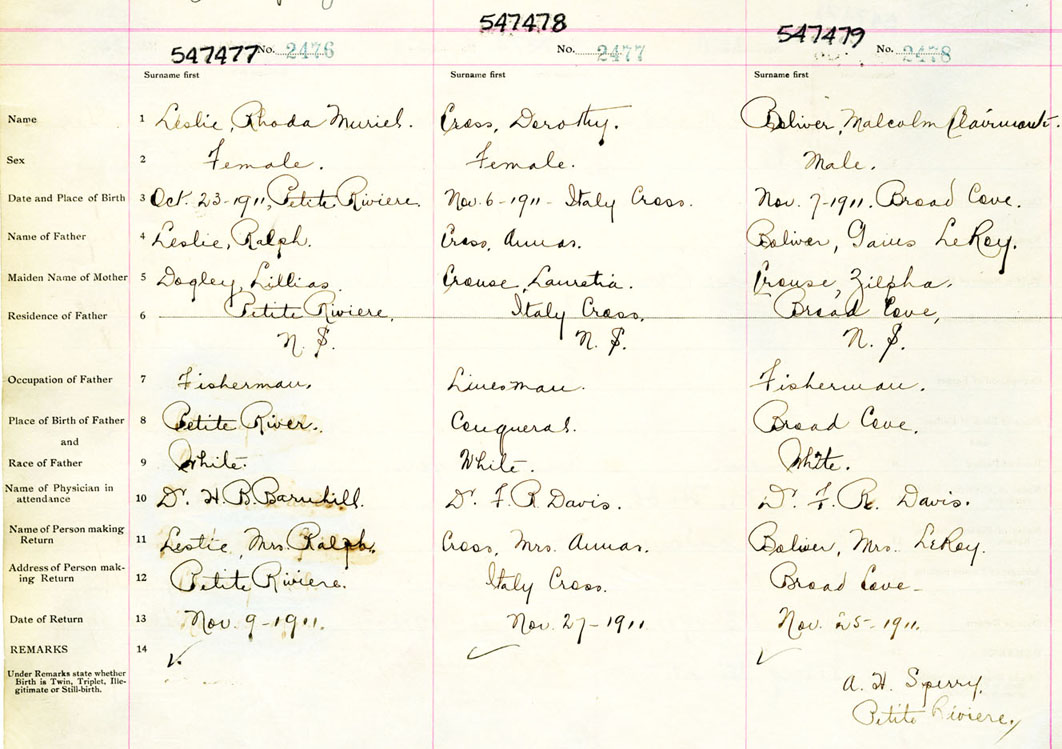 547477 No. 2476 547478 No. 2477 547479 No. 2478
Surname first Surname first Surname first
Name 1 Leslie, Rhoda Muriel. Cross, Dorothy. Boliver, Malcolm Clairmont.
Sex 2 Female. Female. Male.
Date and Place of Birth 3 Oct. 23-1911, Petite Riviere. Nov. 6-1911- Italy Cross. Nov. 7-1911. Broad Cove.
Name of Father 4 Leslie, Ralph. Cross, Annas. Boliver, Gaius LeRoy.
Maiden Name of Mother 5 Dagley, Lillias. Crouse, Lauretia. Crouse, Zilpha.
Residence of Father 6 Petite Riviere, Italy Cross, Broad Cove,
N. S. N. S. N. S.
Occupation of Father 7 Fisherman. Linesman. Fisherman.
Place of Birth of Father 8 Petite River. Conquerall. Broad Cove.
and
Race of Father 9 White. White. White.
Name of Physician in
attendance 10 Dr. H. B. Barnhill. Dr. F. R. Davis. Dr. F. R. Davis.
Name of Person making
Return 11 Leslie, Mrs. Ralph. Cross, Mrs. Annas. Boliver, Mrs. LeRoy.
Address of Person mak-
ing Return 12 Petite Riviere. Italy Cross. Broad Cove-
Date of Return 13 Nov. 9-1911. Nov. 27-1911 Nov. 25-1911.
REMARKS 14
Under Remarks state whether
Birth is Twin, Triplet, Ille-
gitimate or Still-birth.
A. H. Sperry,
Petite Riviere,